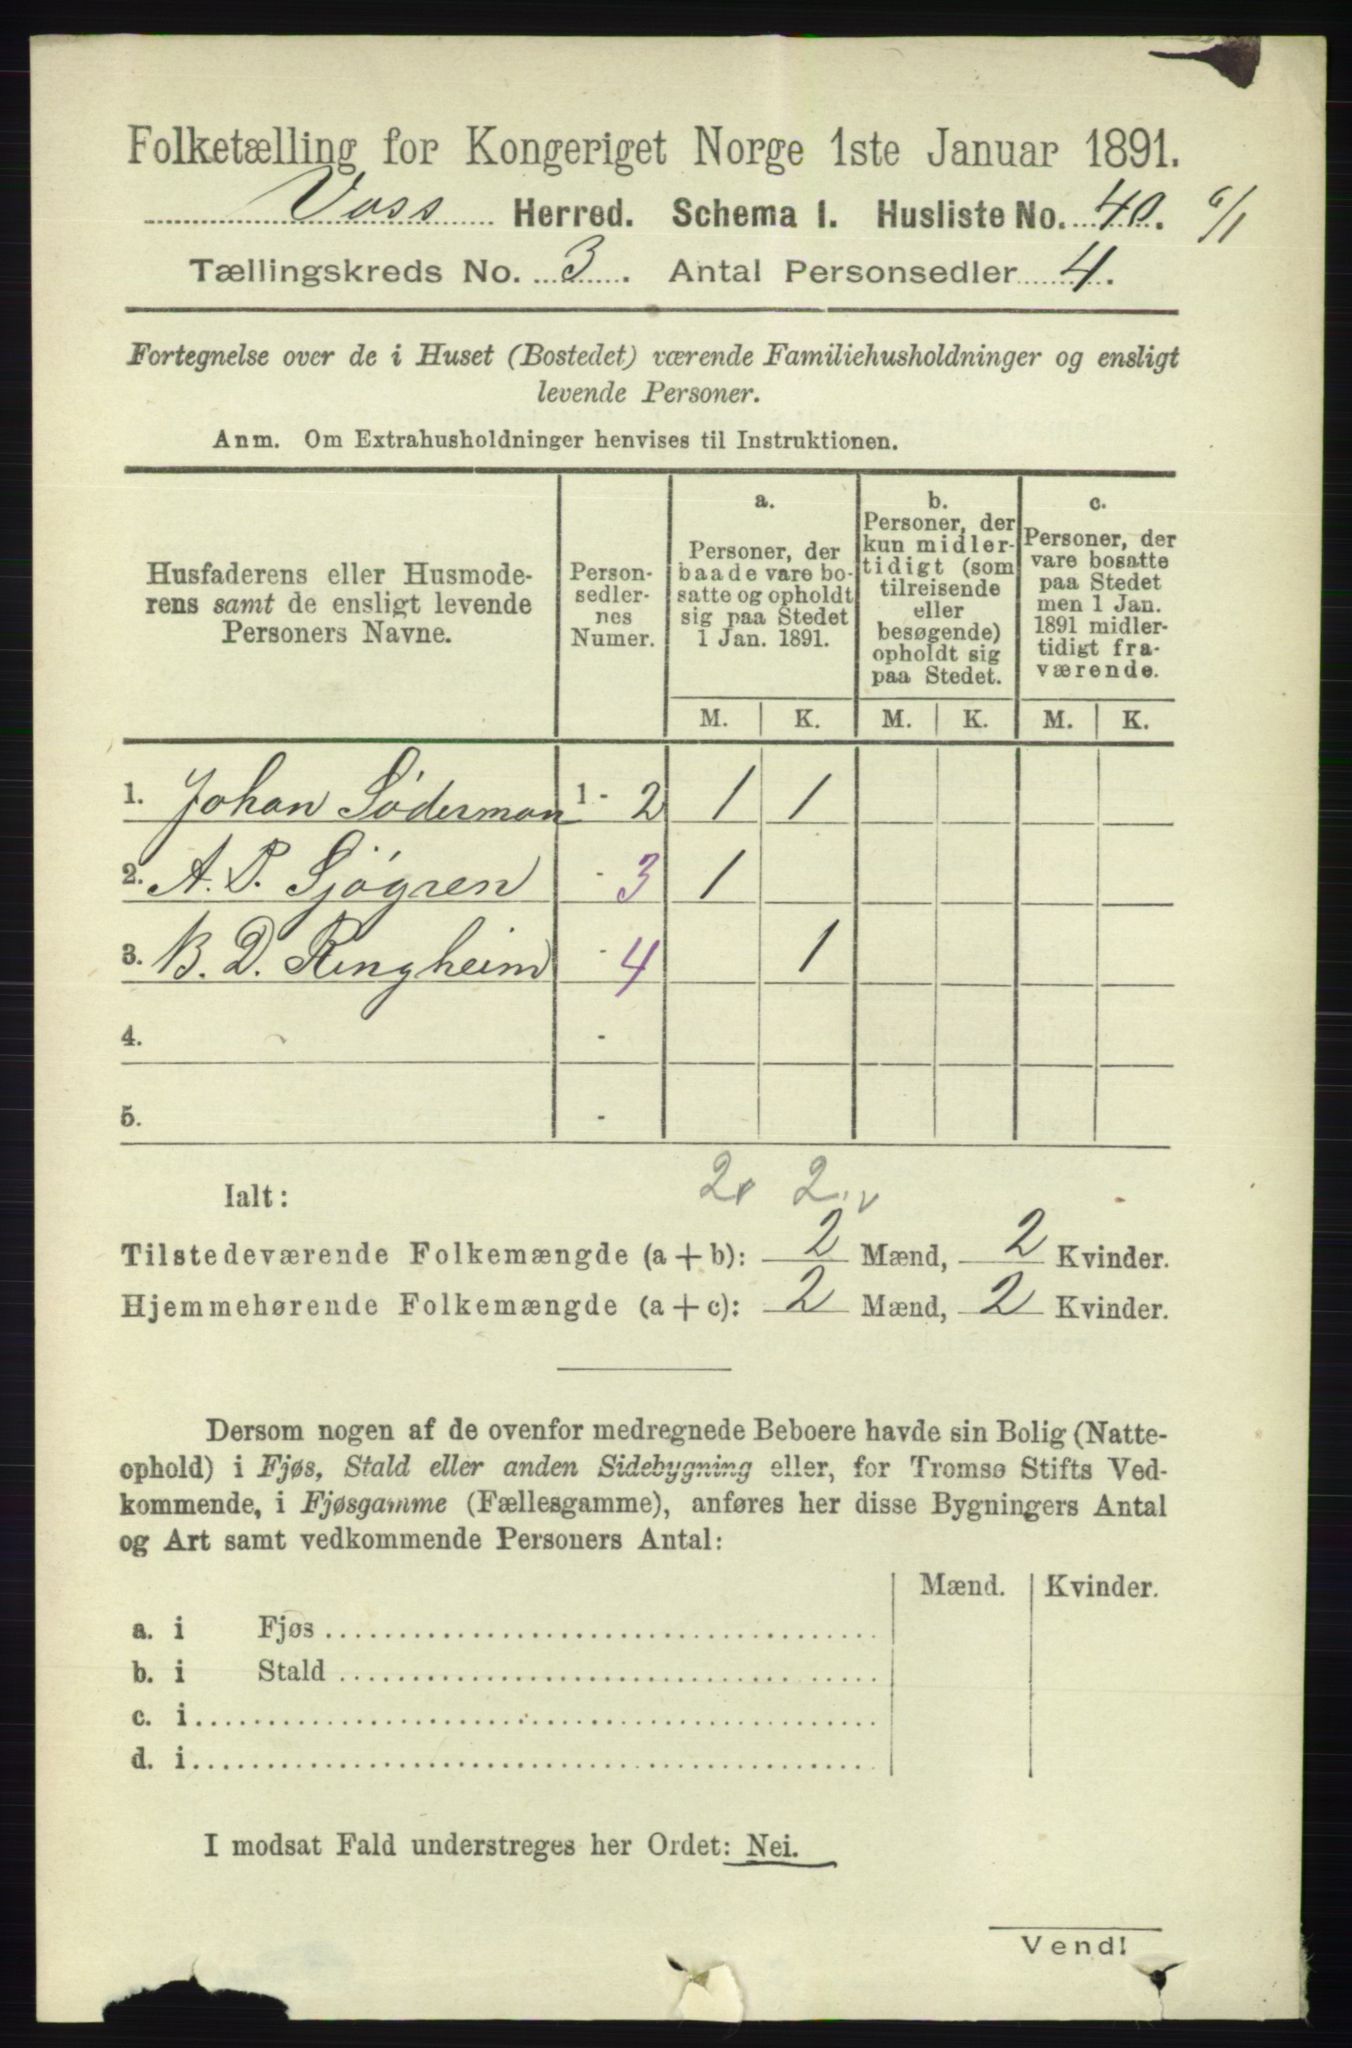 Folketælling for Kongeriget Norge 1ste Januar 1891.
Voss Herred. Schema 1. Husliste No. 40. 6/1
Tællingskreds No. 3. Antal Personsedler 4.
Fortegnelse over de i Huset (Bostedet) værende Familiehusholdninger og ensligt
levende Personer.
Anm. Om Extrahusholdninger henvises til Instruktionen.
Husfaderens eller Husmode-
rens samt de ensligt levende
Personers Navne.
Person-
sedler-
nes
Numer.
a.
Personer, der
baade vare bo-
satte og opholdt
sig paa Stedet
1 Jan. 1891.
b.
Personer, der
kun midler-
tidigt (som
tilreisende
eller
besøgende)
opholdt sig
paa Stedet.
c.
Personer, der
vare bosatte
paa Stedet
men 1 Jan.
1891 midler-
tidigt fra-
værende.
M. K. M. K. M. K.
1. Johan Söderman 1 - 2 1 1
2. A. P. Sjögren - 3 1
3. B. D. Ringheim - 4 1
4. -
5. -
2 2
Ialt:
Tilstedeværende Folkemængde (a + b): 2 Mænd, 2 Kvinder.
Hjemmehørende Folkemængde (a + c): 2 Mænd, 2 Kvinder.
Dersom nogen af de ovenfor medregnede Beboere havde sin Bolig (Natte-
ophold) i Fjøs, Stald eller anden Sidebygning eller, for Tromsø Stifts Ved-
kommende, i Fjøsgamme (Fællesgamme), anføres her disse Bygningers Antal
og Art samt vedkommende Personers Antal:
Mænd. Kvinder.
a. i Fjøs
b. i Stald
c. i
d. i
I modsat Fald understreges her Ordet: Nei.
Vend!